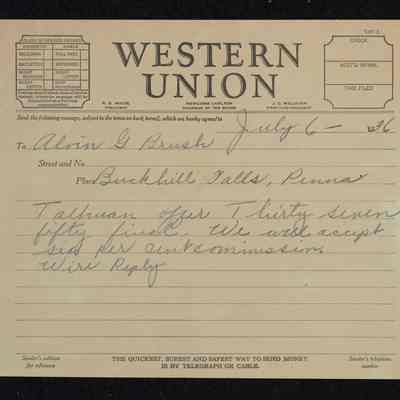 WESTERN
UNION
CHECK
TIME FILED
R. B. WHITE
PRESIDENT
NEWCOMB CARLTON
CHAIRMAN OF THE BOARD
J. C. WILLEVER
FIRST VICE-PRESIDENT
Send the following message, subject to the terms on back hereof, which are hereby agreed to
July 6 — 36
To Alvin G Brush
Street and No.
Place Buckhill Falls, Penna
Tallman offer Thirty seven
fifty final. We will accept
six per cent commission
Wire Reply
Sender's address
for reference
THE QUICKEST, SUREST AND SAFEST WAY TO SEND MONEY
IS BY TELEGRAPH OR CABLE.
Sender's telephone
number